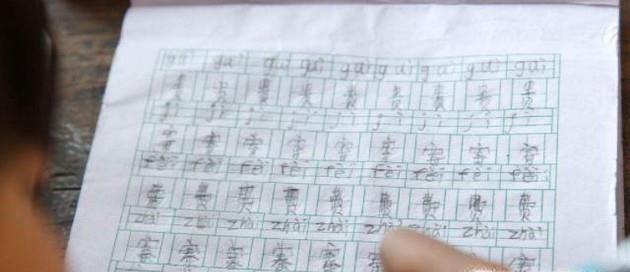 guì guì guì guì guì guì guì guì guì
贵 贵 贵 贵 贵 贵 贵 贵 贵
jì jì jì jì jì jì jì jì jì
寄 寄 寄 寄 寄 寄 寄 寄 寄
fèi fèi fèi fèi fèi fèi fèi fèi fèi
费 费 费 费 费 费 费 费 费
zhài zhài zhài zhài zhài zhài zhài zhài zhài
寨 寨 寨 寨 寨 寨 寨